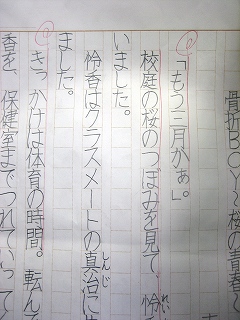 骨折BOY〜桜の青春〜
「もう三月かぁ。」
校庭の桜のつぼみを見て、怜
れい
いました。
怜香はクラスメートの真治に
しんじ
ました。
きっかけは体育の時間。転ん
香を、保健室までつれていって